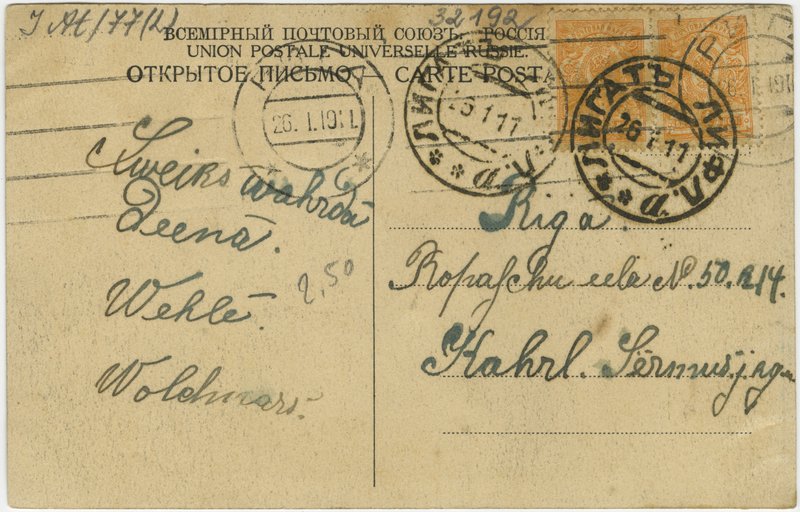 J At/77(2)
32192
ВСЕМІРНЫЙ ПОЧТОВЫЙ СОЮЗЪ. РОССІЯ.
UNION POSTALE UNIVERSELLE RUSSIE.
ОТКРЫТОЕ ПИСЬМО — CARTE POST
26.1.1911
ЛИГАТЪ ЛИФЛ.
26 1 11
ЛИГАТЪ ЛИФЛ.
26 1 11
Sweiks wahrdā
Deenā.
Wehlē.
Woldmars.
2,50
Riga
Ropaschu eela N. 50. 14.
Kahrl.